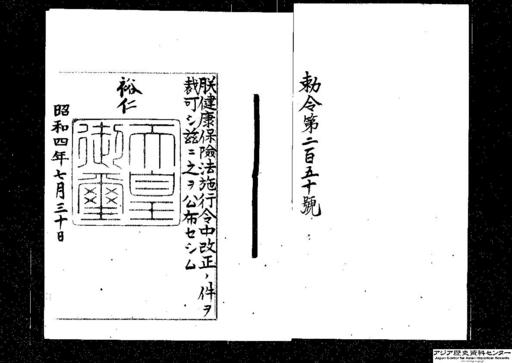 勅令第二百五十號
朕健康保險法施行令中改正ノ件ヲ
裁可シ茲ニ之ヲ公布セシム
裕仁
天皇
御璽
昭和四年七月三十日
アジア歴史資料センター
Japan Center for Asian Historical Records